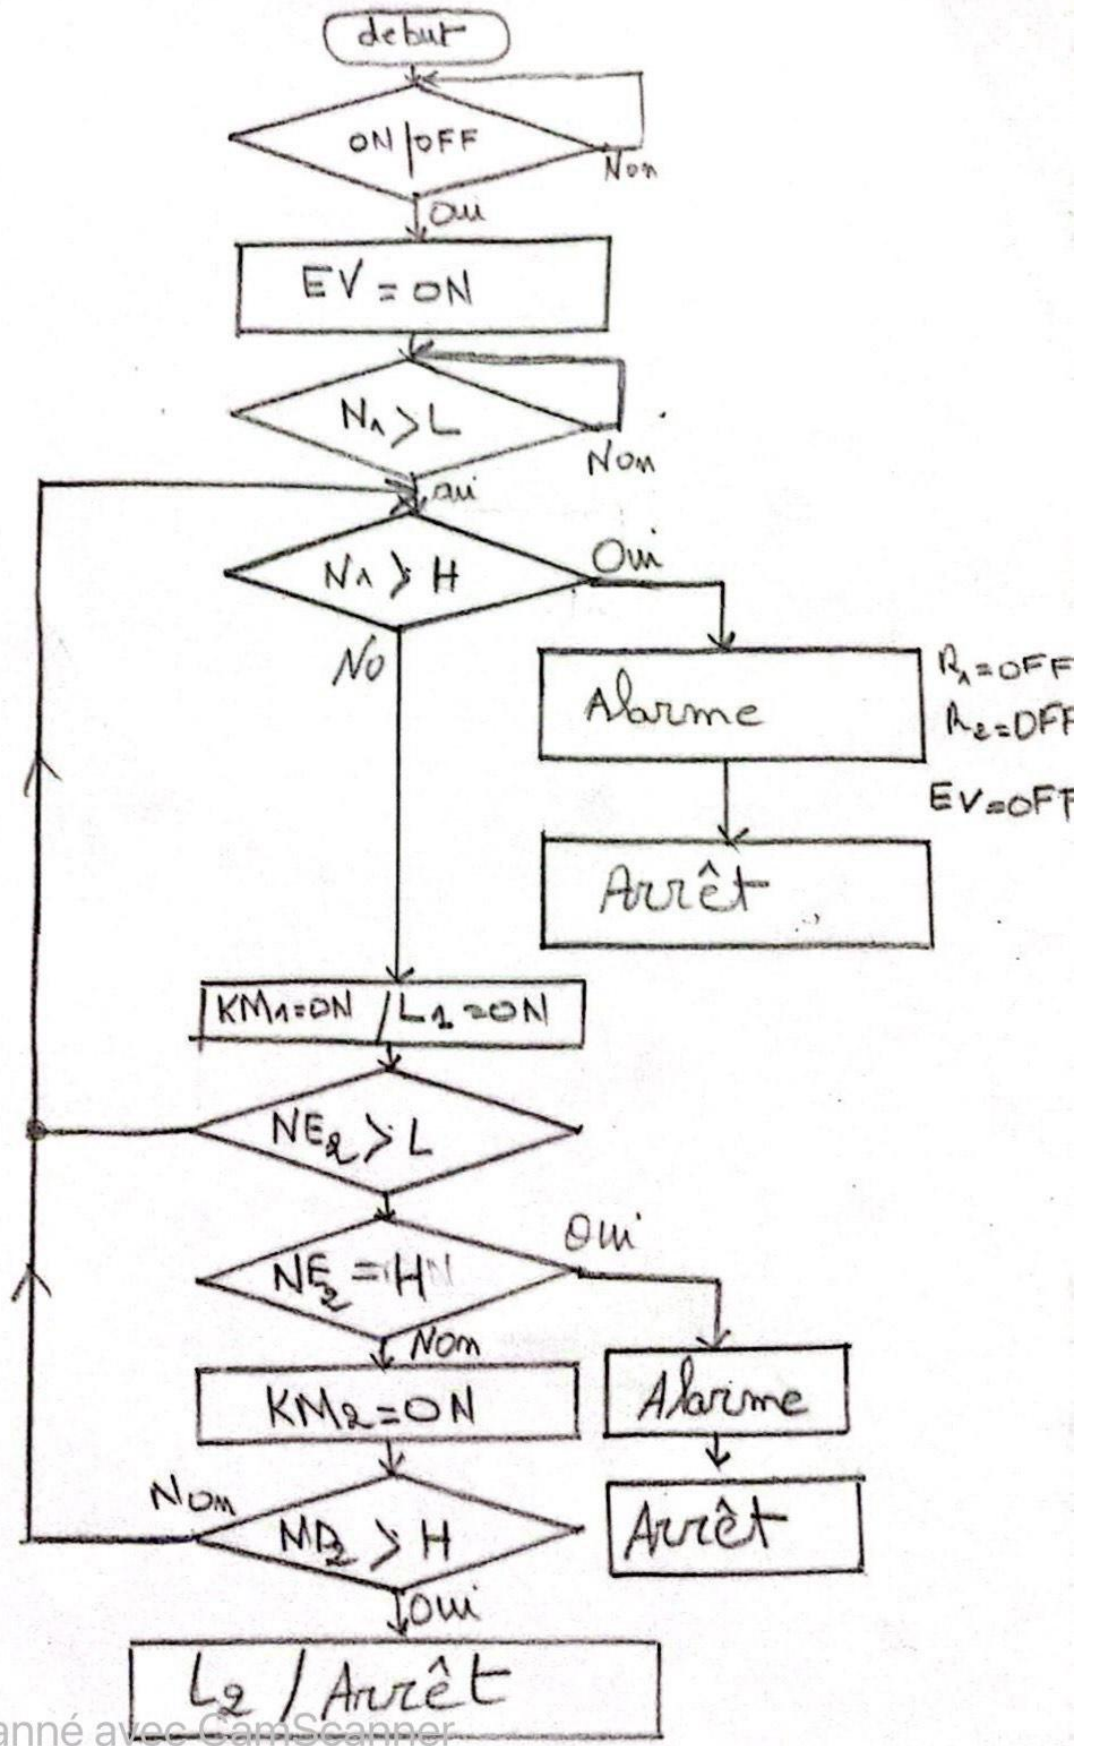 debut
ON/OFF
Non
Oui
EV=ON
N1>L
Non
oui
N1>H
Oui
No
Alarme
R1=OFF
R2=OFF
EV=OFF
Arrêt
KM1=ON / L1=ON
NE2>L
NE2=H
Oui
Non
KM2=ON
Alarme
Non
Arrêt
>H
Oui
L2 / Arrêt
anné avec CamScanner